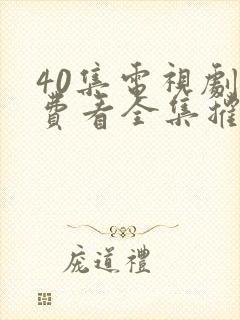 40集電視劇
費看全集推
龐道禮